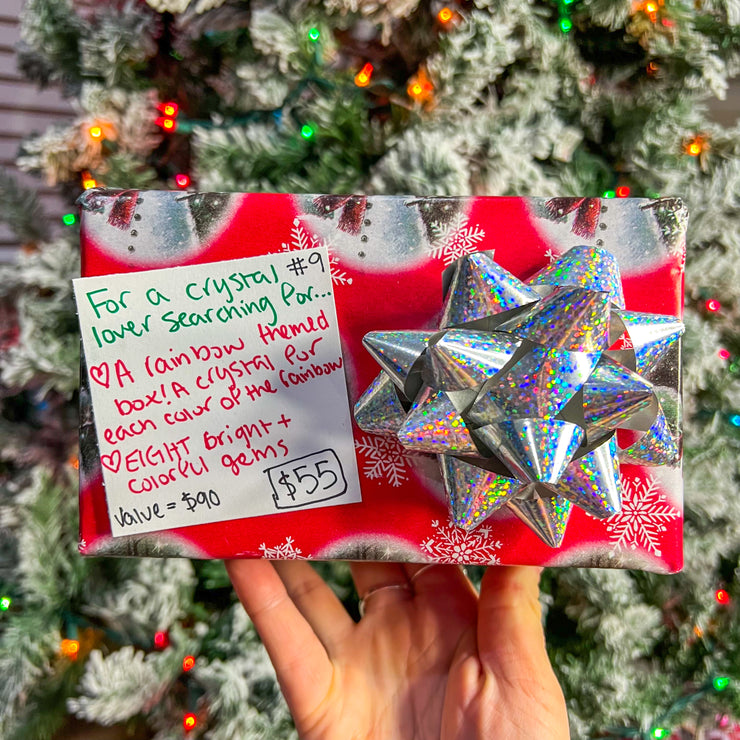 For a crystal #9
lover searching for...
♡ A rainbow themed
box! A crystal for
each color of the rainbow
♡ EIGHT bright +
colorful gems
Value = $90 $55